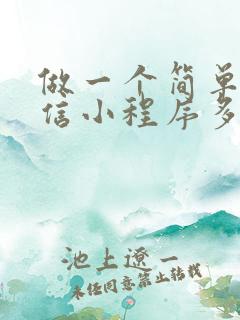 做一个简单
信小程序多
池上遼一
未经同意禁止转载